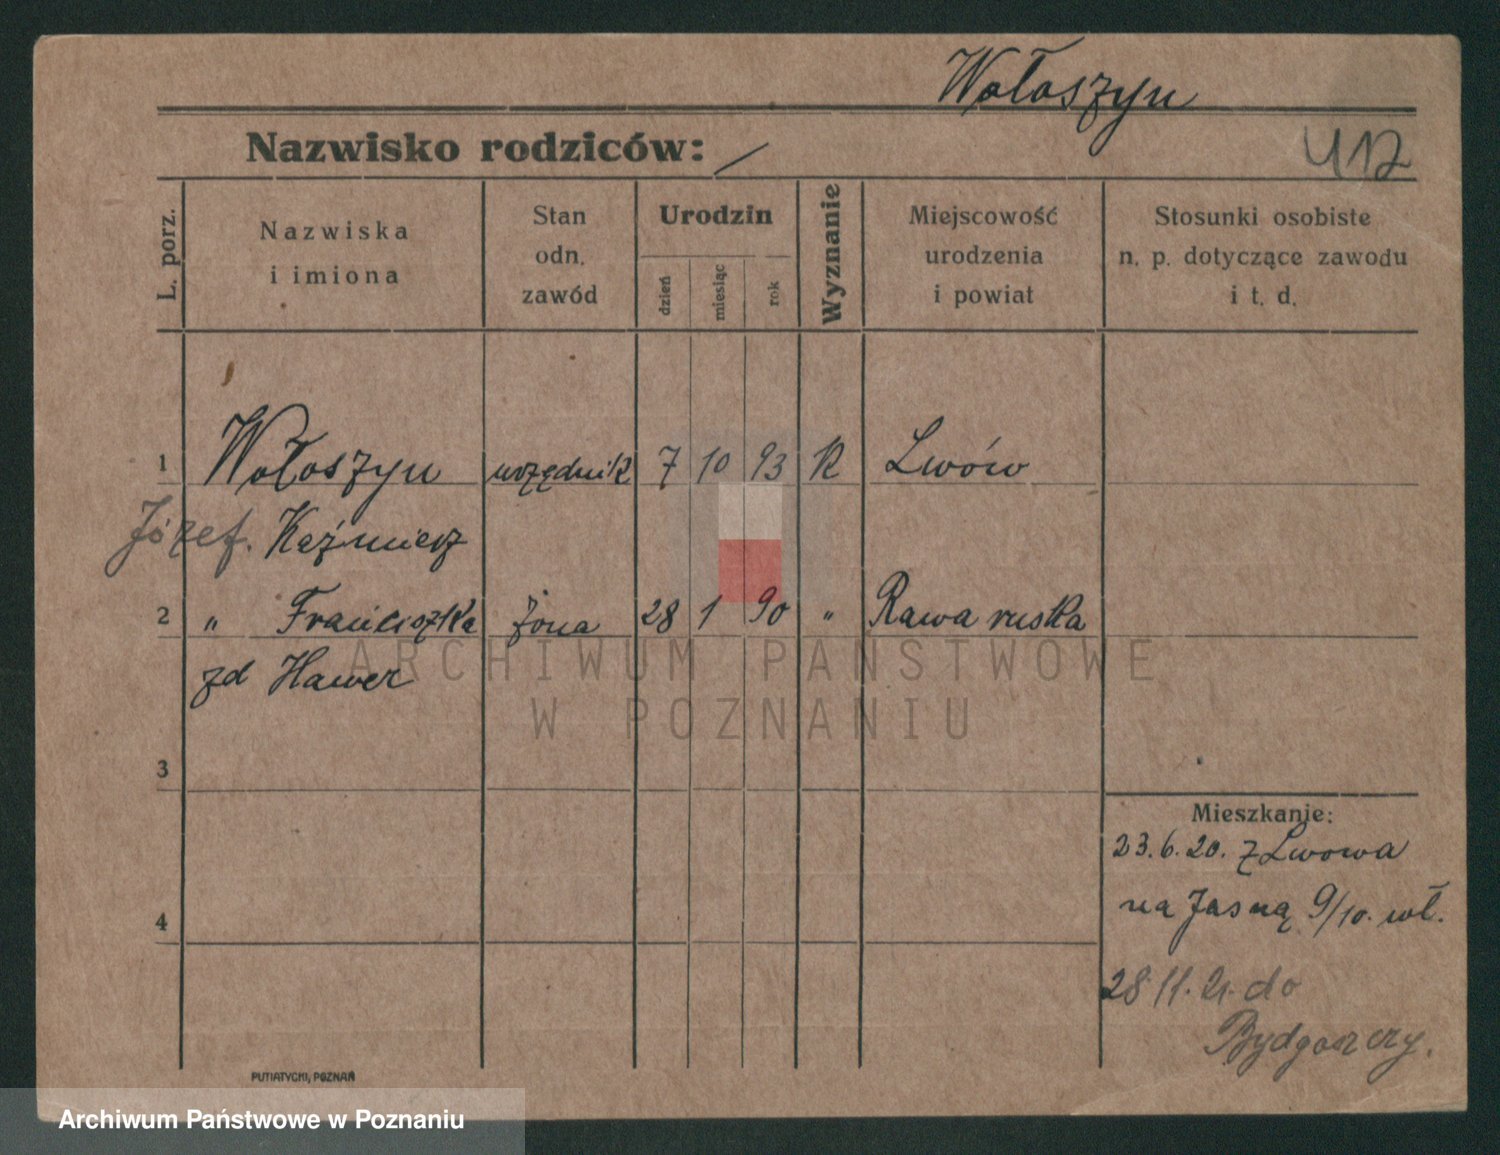 Wołoszyn
Nazwisko rodziców: /
412
L. porz.
Nazwiska
i imiona
Stan
odn.
zawód
Urodzin
dzień
miesiąc
rok
Wyznanie
Miejscowość
urodzenia
i powiat
Stosunki osobiste
n. p. dotyczące zawodu
i t. d.
1 Wołoszyn urzędnik 7 10 93 K Lwów
Józef. Kaźmierz
2 " Franciszka żona 28 1 90 " Rawa ruska
zd Hawer
ARCHIWUM PAŃSTWOWE
W POZNANIU
3
Mieszkanie:
23.6.20. z Lwowa
na Jasną 9/10. wł.
4
28 11. 21. do
Bydgoszczy.
PUTIATYCKI, POZNAŃ
Archiwum Państwowe w Poznaniu